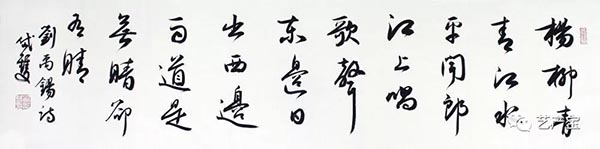 楊柳青
青江水
平聞郎
江上唱
歌聲
東邊日
出西邊
雨道是
無晴卻
有晴
劉禹錫詩
艺产宝